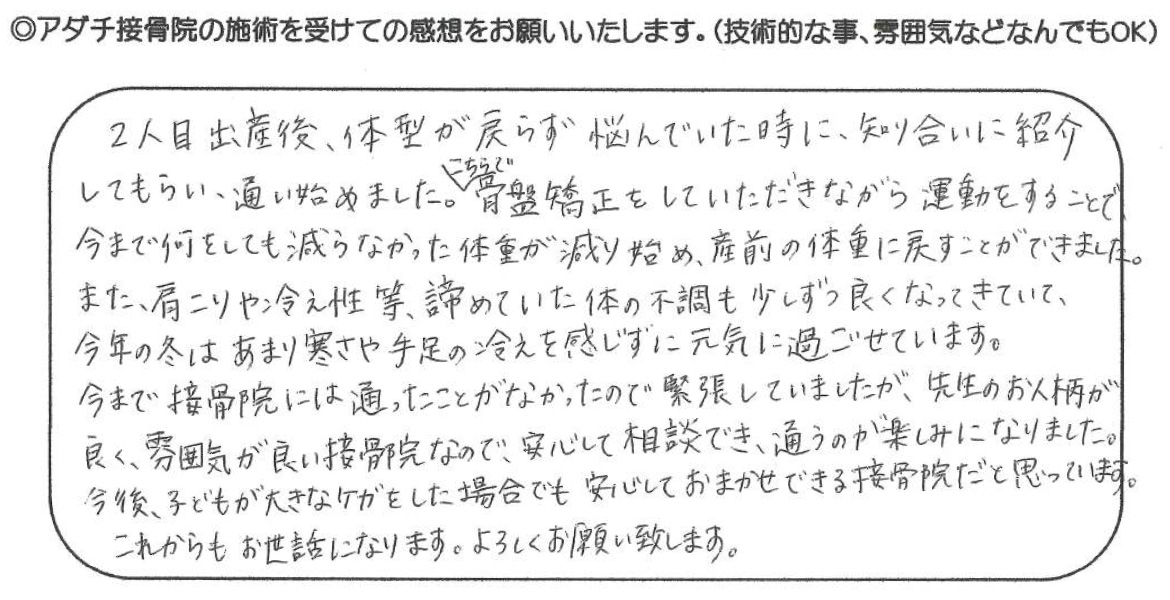 ◎アダチ接骨院の施術を受けての感想をお願いいたします。(技術的な事、雰囲気などなんでもOK)
2人目出産後、体型が戻らず悩んでいた時に、知り合いに紹介
してもらい、通い始めました。こちらで骨盤矯正をしていただきながら運動をすることで、
今まで何をしても減らなかった体重が減り始め、産前の体重に戻すことができました。
また、肩こりや冷え性等、諦めていた体の不調も少しずつ良くなってきていて、
今年の冬はあまり寒さや手足の冷えを感じずに元気に過ごせています。
今まで接骨院には通ったことがなかったので緊張していましたが、先生のお人柄が
良く、雰囲気が良い接骨院なので、安心して相談でき、通うのが楽しみになりました。
今後、子どもが大きなケガをした場合でも安心しておまかせできる接骨院だと思っています。
これからもお世話になります。よろしくお願い致します。